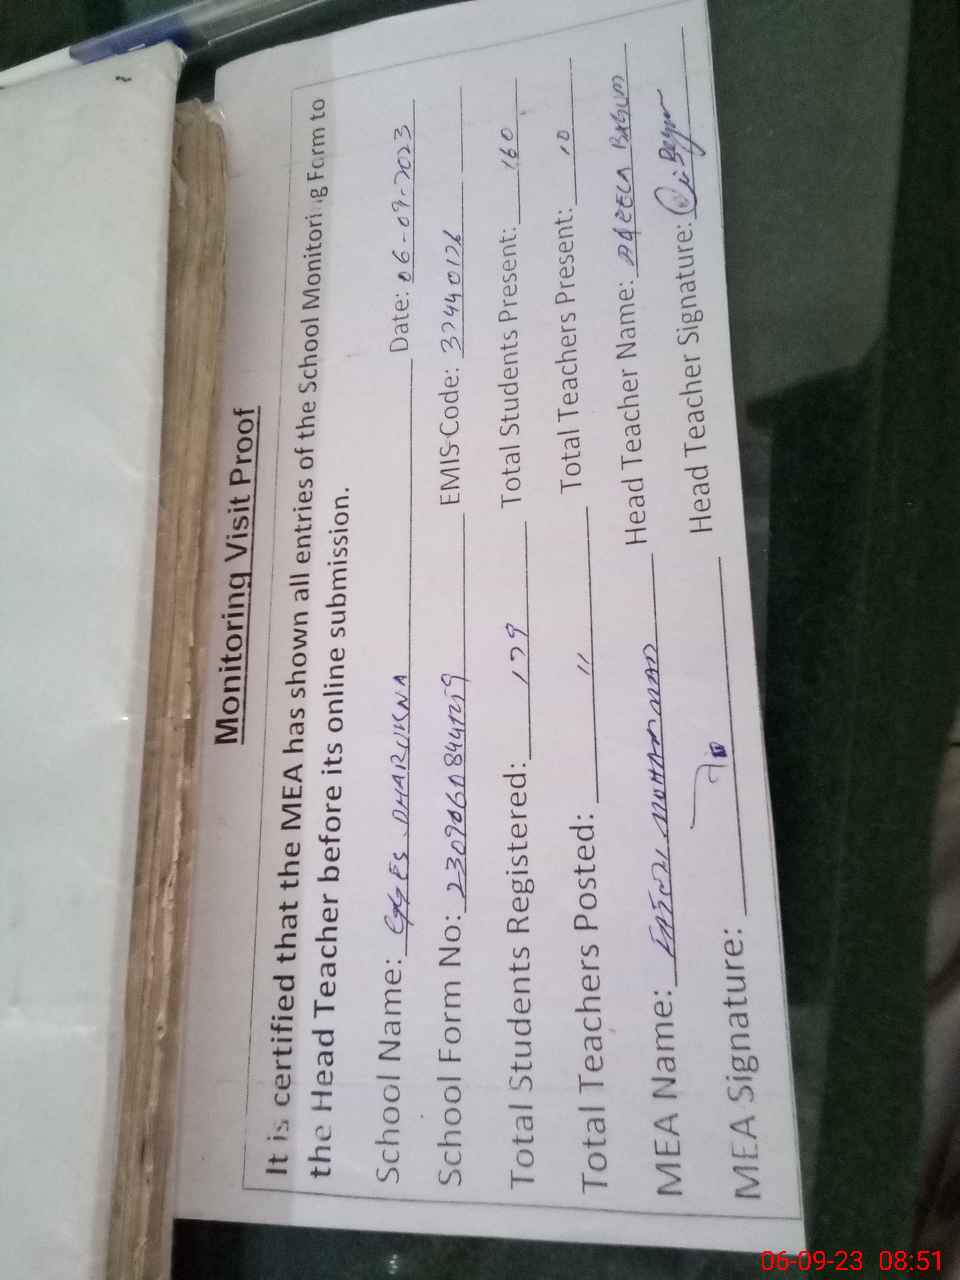 Monitoring Visit Proof
It is certified that the MEA has shown all entries of the School Monitoring Form to
the Head Teacher before its online submission.
School Name: GGES DHARUKNA Date: 06-09-2023
School Form No: EMIS Code: 37440126
Total Students Registered: 179 Total Students Present: 160
Total Teachers Posted: 11 Total Teachers Present: 10
MEA Name: MUHAMMAD Head Teacher Name: BEGUM
MEA Signature: Head Teacher Signature:
06-09-23 08:51